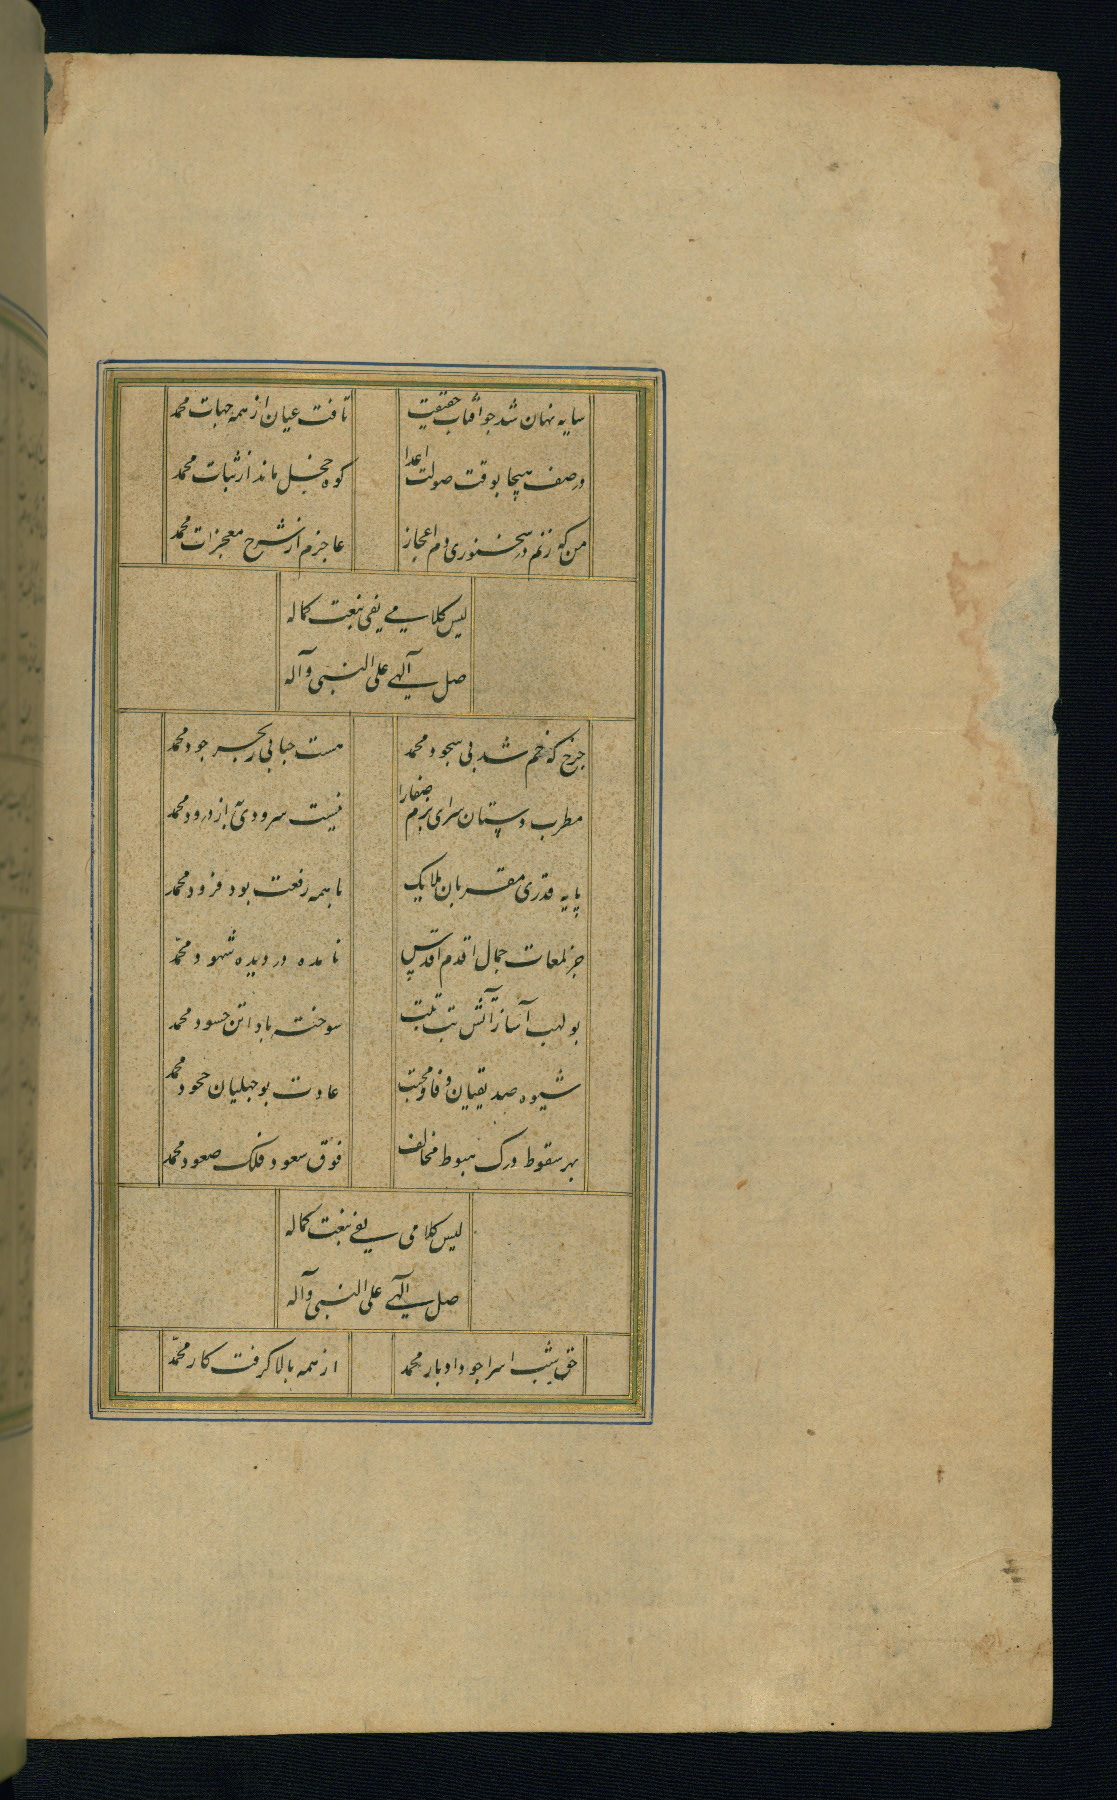 سایه نهان شد جو آفتاب حقیقت تافت عیان از همه جهات محمد
در صف هیجا بوقت صولت اعدا کوه خجل ماند از ثبات محمد
من که زنم در سخنوری دم اعجاز عاجزم از شرح معجزات محمد
لیس کلامی یفی بنعت کماله
صل الهی علی النبی وآله
جرخ که خم شد بی سجود محمد هست حبابی ز بحر جود محمد
مطرب دستان سرای بزم صفا را نیست سرودی به از درود محمد
پایه قدری مقربان ملایک با همه رفعت بود فرود محمد
جز لمعات جمال اقدم اقدس نامده در دیده شهود محمد
بولهب آسا ز آتش تب تبت سوخته بادا تن حسود محمد
شیوه صدیقیان وفا و محبت عادت بوجهلیان جحود محمد
بهر سقوط درک هبوط مخالف فوق سعود فلک صعود محمد
لیس کلامی یفی بنعت کماله
صل الهی علی النبی وآله
حق بشب اسرا جو داد بار محمد از همه بالا گرفت کار محمد